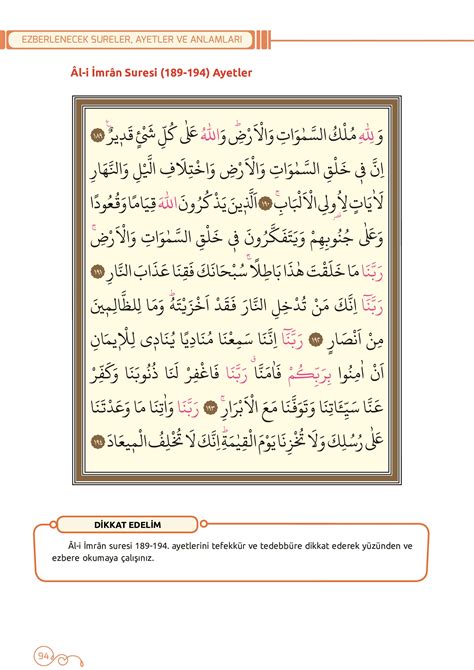 EZBERLENECEK SURELER, AYETLER VE ANLAMLARI
Âl-i İmrân Suresi (189-194) Ayetler
وَلِلّٰهِ مُلْكُ السَّمٰوَاتِ وَالْاَرْضِۜ وَاللّٰهُ عَلٰى كُلِّ شَيْءٍ قَد۪يرٌ۟ ﴿١٨٩﴾
اِنَّ ف۪ي خَلْقِ السَّمٰوَاتِ وَالْاَرْضِ وَاخْتِلَافِ الَّيْلِ وَالنَّهَارِ
لَاٰيَاتٍ لِاُو۬لِي الْاَلْبَابِۚ ﴿١٩٠﴾ اَلَّذ۪ينَ يَذْكُرُونَ اللّٰهَ قِيَامًا وَقُعُودًا
وَعَلٰى جُنُوبِهِمْ وَيَتَفَكَّرُونَ ف۪ي خَلْقِ السَّمٰوَاتِ وَالْاَرْضِۚ
رَبَّنَا مَا خَلَقْتَ هٰذَا بَاطِلًاۚ سُبْحَانَكَ فَقِنَا عَذَابَ النَّارِ ﴿١٩١﴾
رَبَّنَٓا اِنَّكَ مَنْ تُدْخِلِ النَّارَ فَقَدْ اَخْزَيْتَهُۜ وَمَا لِلظَّالِم۪ينَ
مِنْ اَنْصَارٍ ﴿١٩٢﴾ رَبَّنَٓا اِنَّنَا سَمِعْنَا مُنَادِيًا يُنَاد۪ي لِلْا۪يمَانِ
اَنْ اٰمِنُوا بِرَبِّكُمْ فَاٰمَنَّاۗ رَبَّنَا فَاغْفِرْ لَنَا ذُنُوبَنَا وَكَفِّرْ
عَنَّا سَيِّـَٔاتِنَا وَتَوَفَّنَا مَعَ الْاَبْرَارِۚ ﴿١٩٣﴾ رَبَّنَا وَاٰتِنَا مَا وَعَدْتَنَا
عَلٰى رُسُلِكَ وَلَا تُخْزِنَا يَوْمَ الْقِيٰمَةِۜ اِنَّكَ لَا تُخْلِفُ الْم۪يعَادَ ﴿١٩٤﴾
DİKKAT EDELİM
Âl-i İmrân suresi 189-194. ayetlerini tefekkür ve tedebbüre dikkat ederek yüzünden ve
ezbere okumaya çalışınız.
94